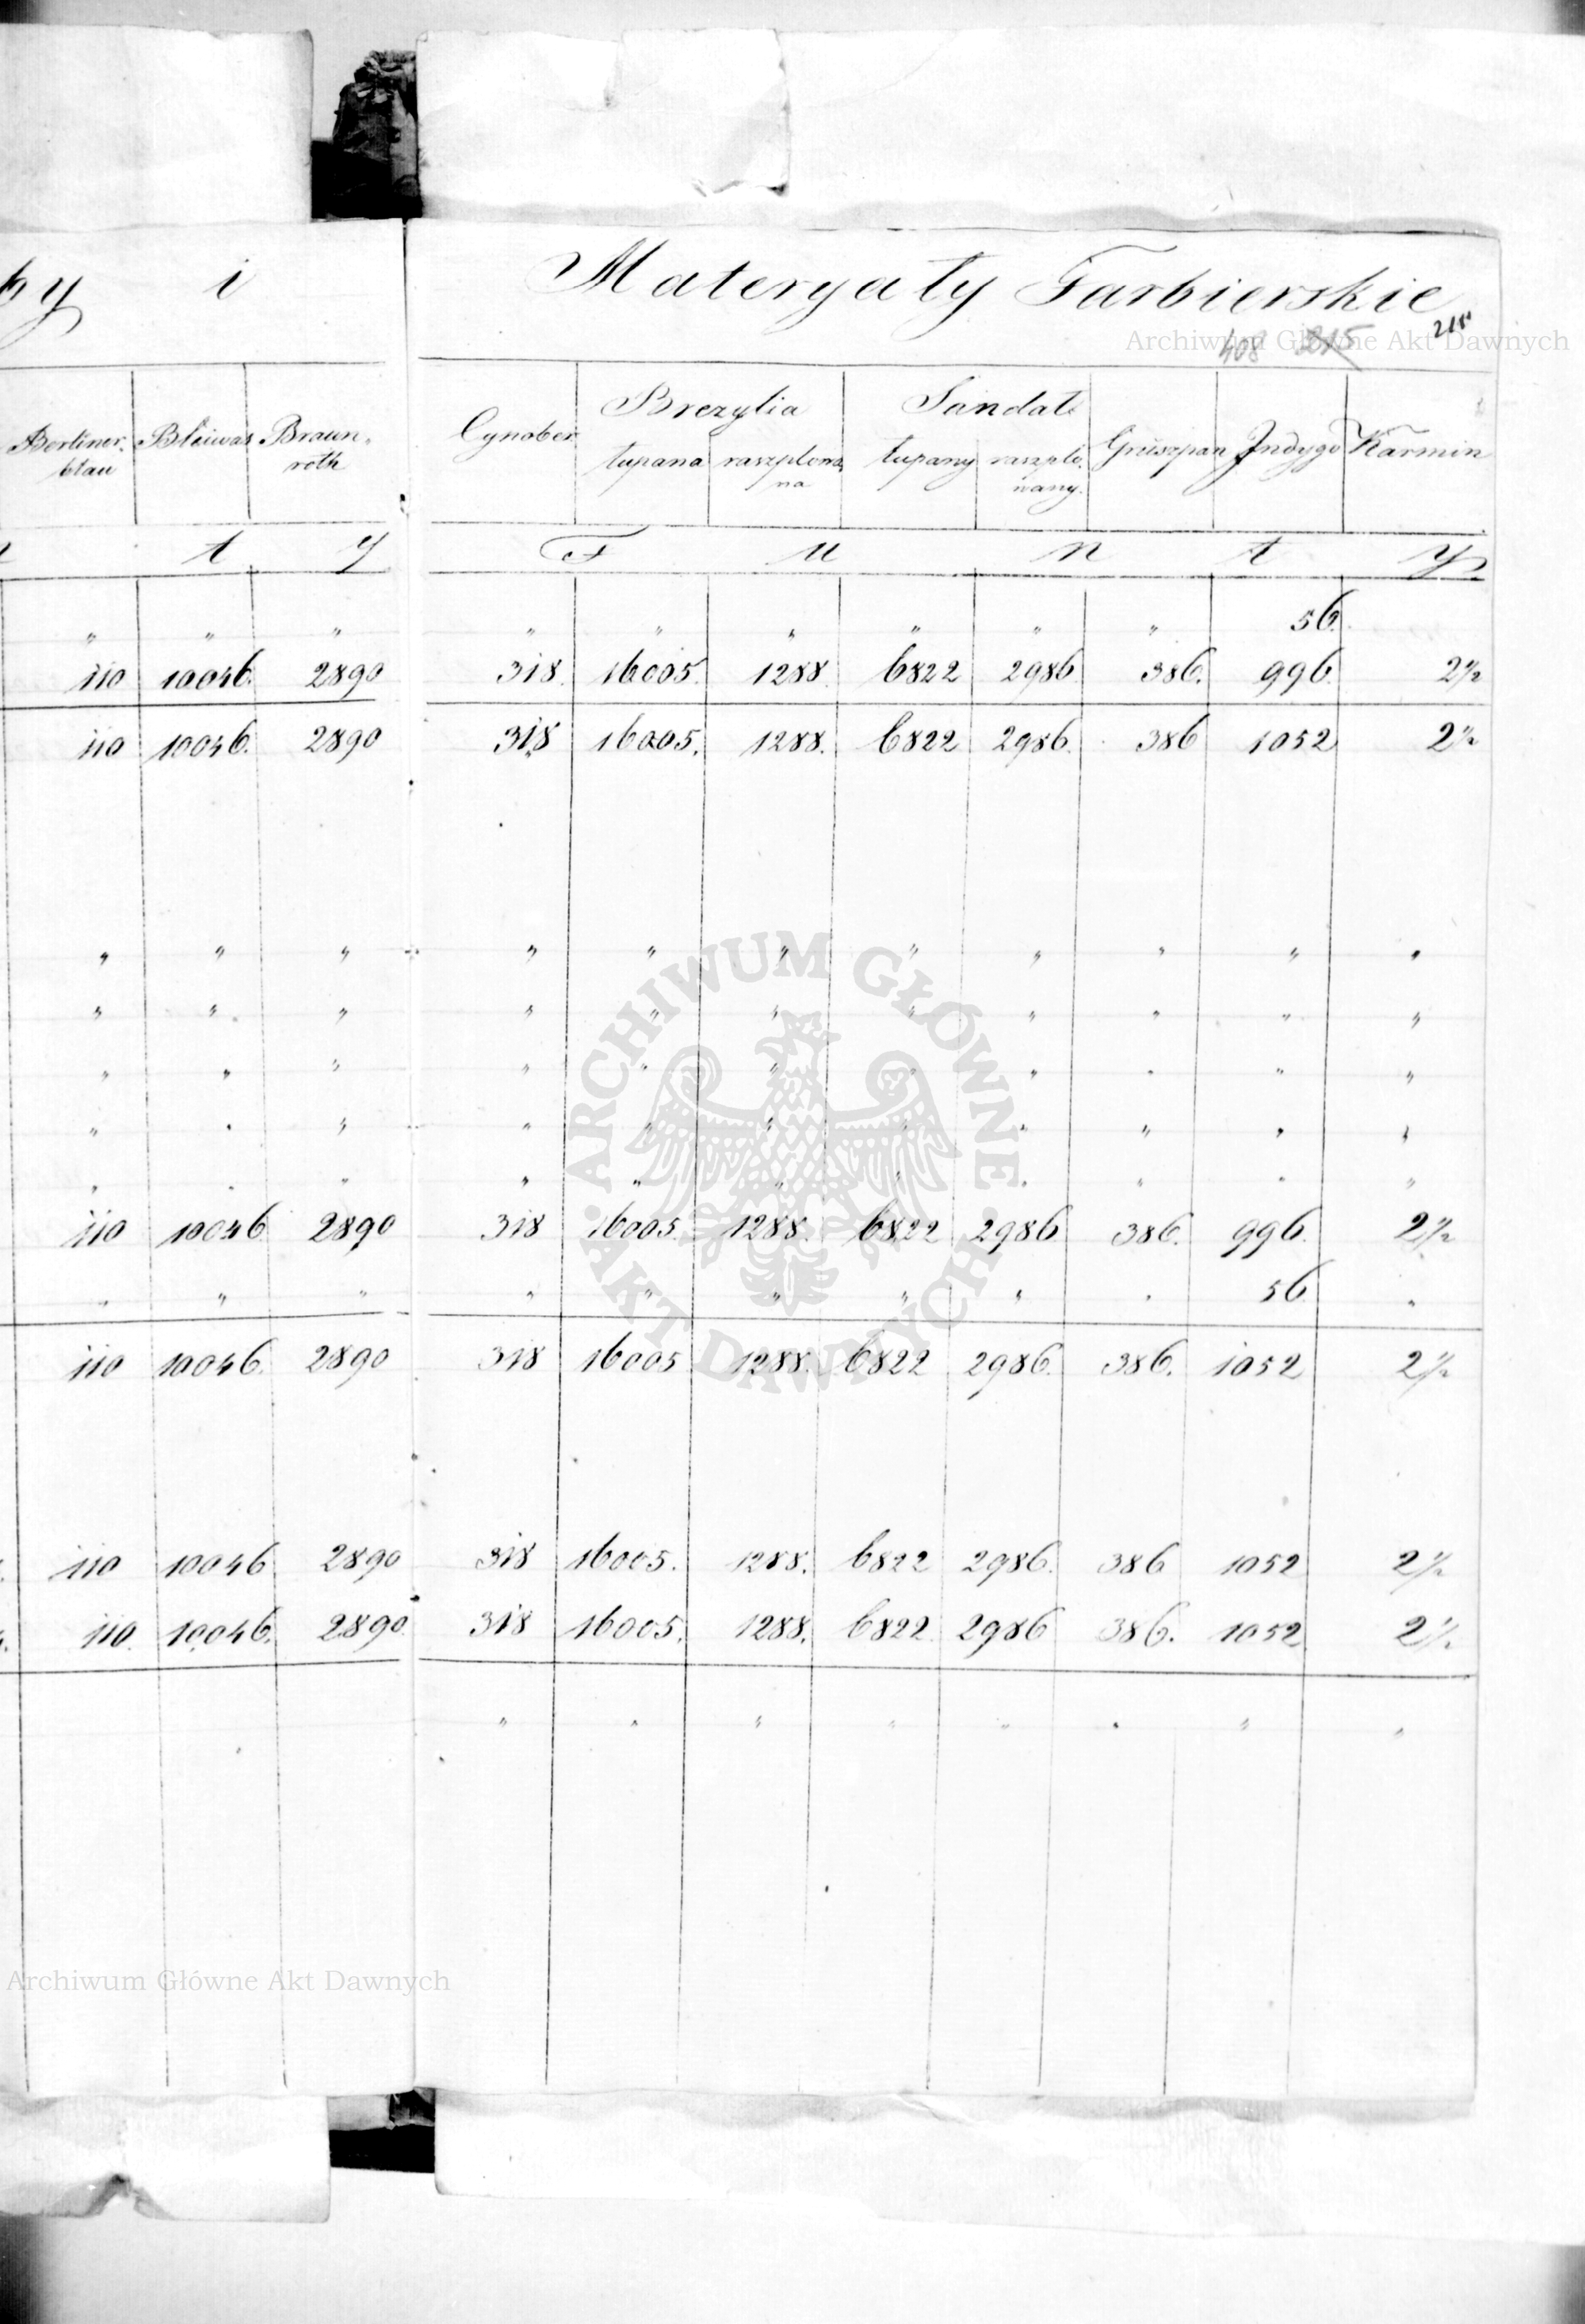 by i Materyały Farbierskie
408 215 215
Berliner- Bleiwas Braun- Cynober Brezylia Sandał Grüszpan Indygo Karmin
blau roth łupana raszplowa łupany raszplo-
na wany.
t y F u n t y
" " " " " " " " " 56.
110 10046. 2890 318. 16005. 1288. 6822 2986 386. 996. 2½
110 10046. 2890 318 16005. 1288. 6822 2986. 386 1052 2½
" " " " " " " " " " "
" " " " " " " " " " "
" " " " " " " " " " "
" " " " " " " " " " "
" " " " " " " " " " "
110 10046 2890 318 16005. 1288. 6822 2986 386. 996. 2½
" " " " " " " " " 56 "
110 10046. 2890 318 16005 1288. 6822 2986. 386. 1052 2½
110 10046 2890 318 16005. 1288. 6822 2986. 386 1052 2½
110. 10046. 2890. 318 16005. 1288. 6822 2986 386. 1052 2½
" " " " " " " "
Archiwum Główne Akt Dawnych
ARCHIWUM GŁÓWNE • AKT DAWNYCH •
Archiwum Główne Akt Dawnych